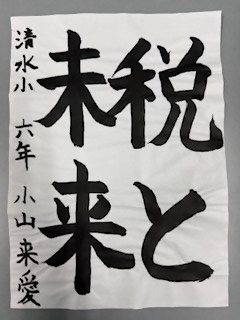 税と
未来
清水小 六年 小山来愛